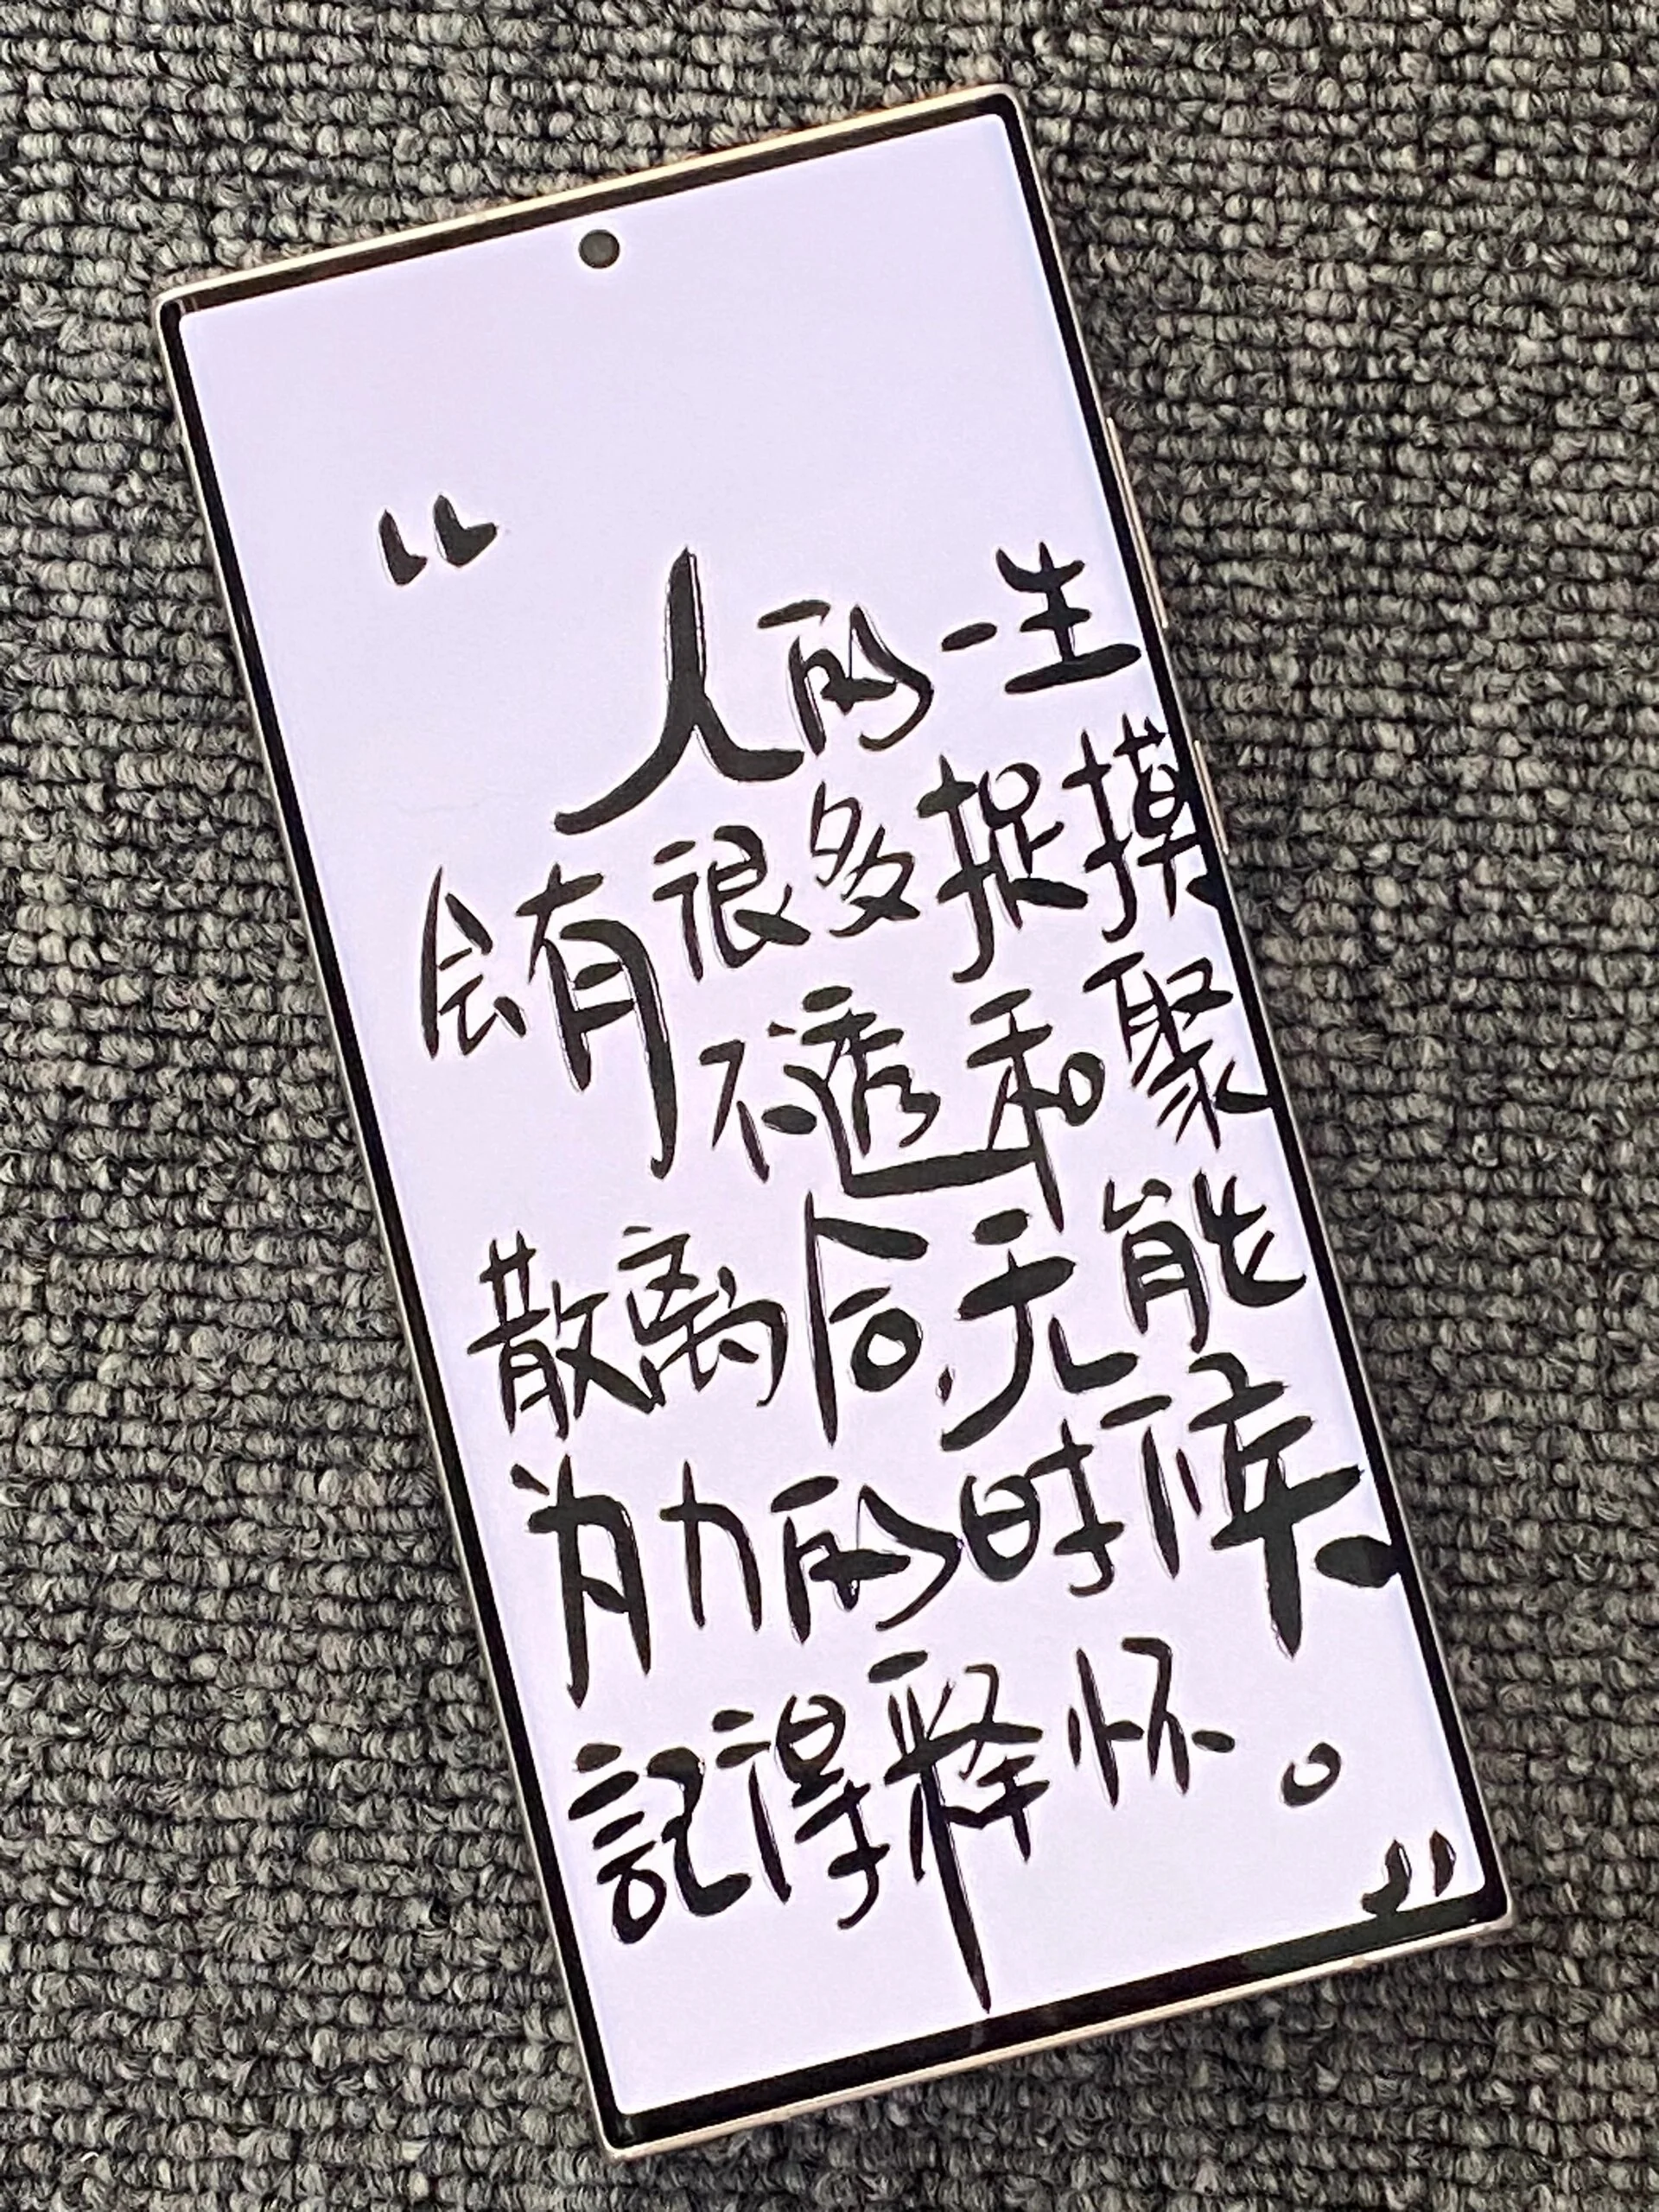 “
人的一生
会有很多捉摸
不透和聚
散离合,无能
为力的时候
記得释怀。
”